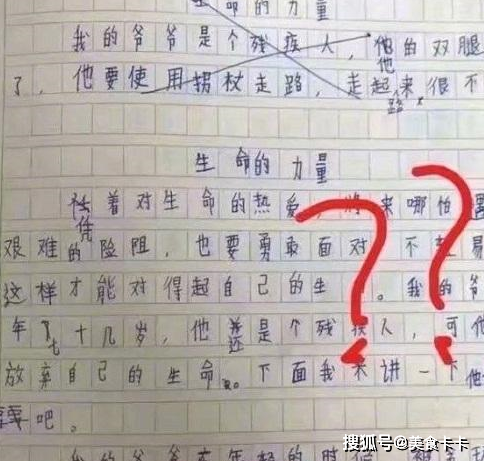 生命的力量
我的爷爷是个残疾人，他的双腿
了，他要使用拐杖走路，走起路来很不
生命的力量
凭着对生命的热爱 将来哪怕遇
艰难的险阻，也要勇敢面对 不 易
这样才能对得起自己的生 。我的爷
年 七十几岁，他还是个残疾人，可他
放弃自己的生命。下面我来讲一下他
要吧。
我的爷爷在年轻的时候
搜狐号@美食卡卡